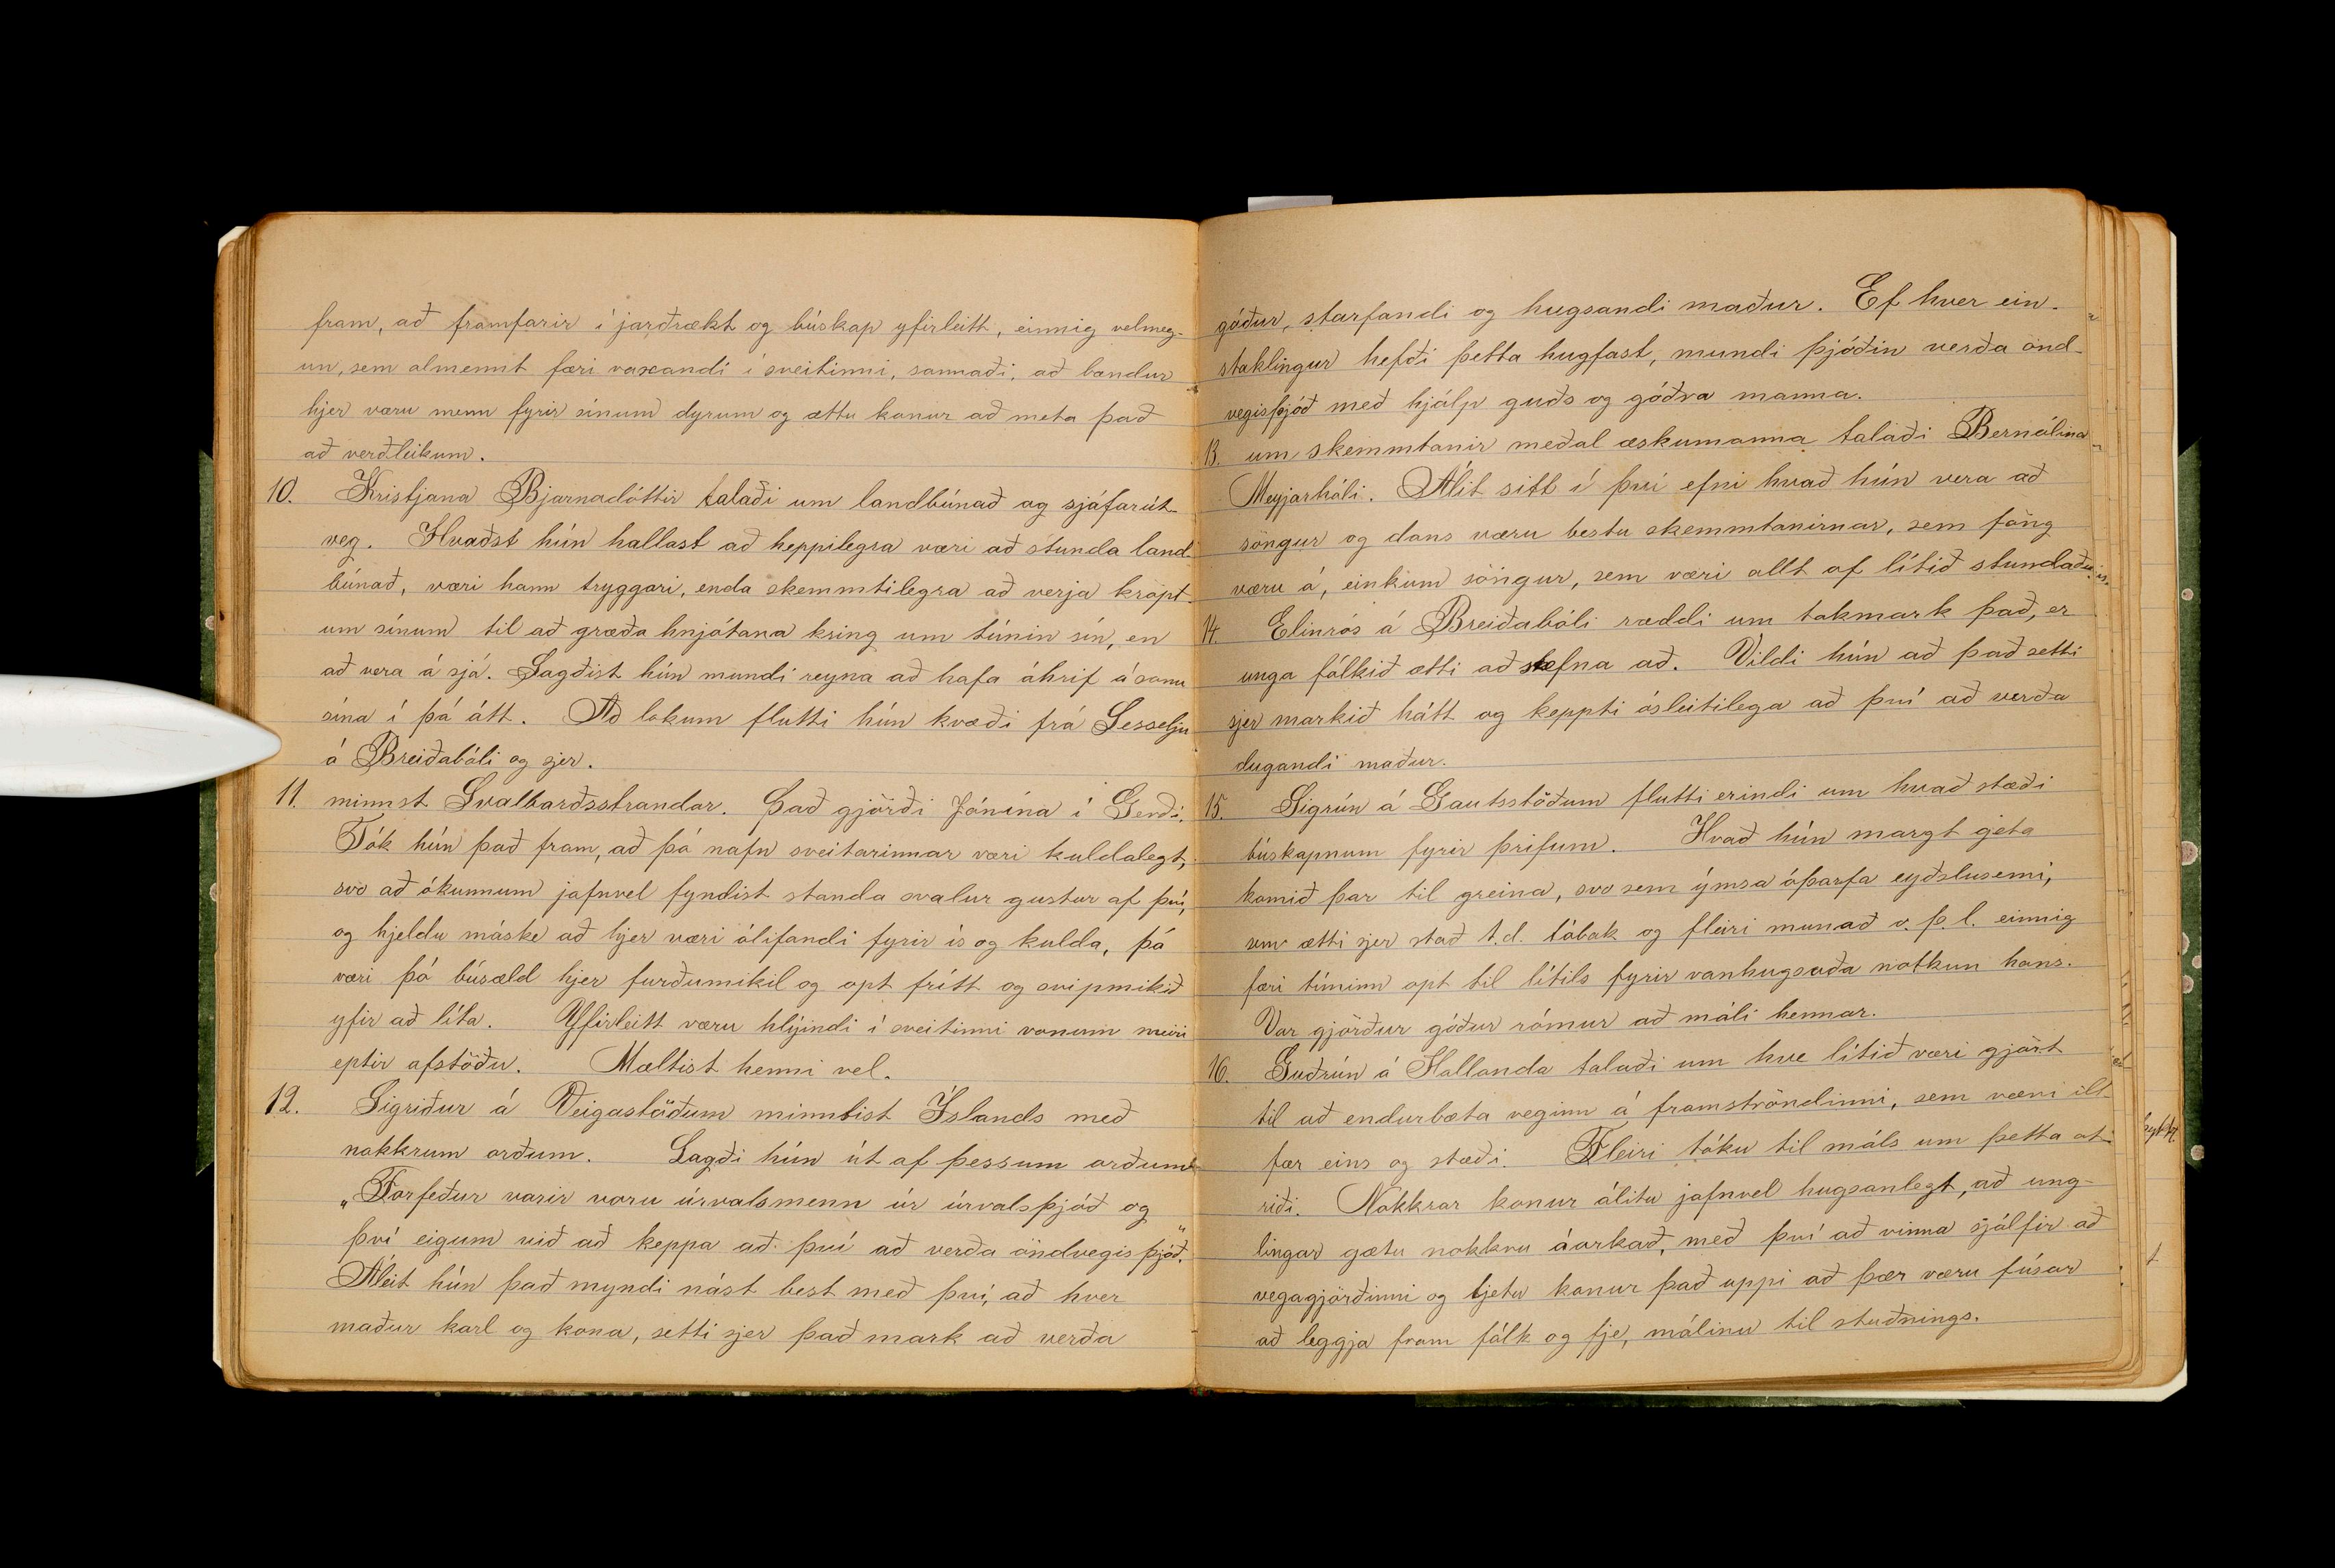 fram, að framfarir í jarðrækt og búskap yfirleitt, einnig velmeg-
un, sem almennt færi vaxandi í sveitinni, sannaði, að bændur
hjer væru menn fyrir sínum dyrum og ættu konur að meta það
að verðleikum.
10. Kristjana Bjarnadóttir talaði um landbúnað og sjáfarút-
veg. Kvaðst hún hallast að heppilegra væri að stunda land-
búnað, væri hann tryggari, enda skemmtilegra að verja kröpt-
um sínum til að græða hnjótana kring um túnin sín, en
að vera á sjá. Sagðist hún mundi reyna að hafa áhrif á sonu
sína í þá átt. Að lokum flutti hún kvæði frá Sesselju
á Breiðabóli og sjer.
11. minnst Svalbarðsstrandar. Það gjörði Jónína í Gerði.
Tók hún það fram, að þó nafn sveitarinnar væri kuldalegt,
svo að ókunnum jafnvel fyndist standa svalur gustur af því,
og hjeldu máske að hjer væri ólifandi fyrir ís og kulda, þá
væri þó búsæld hjer furðumikil og opt frítt og svipmikið
yfir að líta. Yfirleitt væru hlýindi í sveitinni vonum meiri
eptir afstöðu. Mæltist henni vel.
12. Sigriður á Veigastöðum minntist Íslands með
nokkrum orðum. Lagði hún út af þessum orðum
„Forfeður varir voru úrvalsmenn úr úrvalsþjóð og
því eigum við að keppa að því að verða öndvegisþjóð."
Áleit hún það myndi nást best með því, að hver
maður karl og kona, setti sjer það mark að verða
góður, starfandi og hugsandi maður. Ef hver ein-
staklingur hefði þetta hugfast, mundi þjóðin verða önd-
vegisþjóð með hjálp guðs og góðra manna.
13. um skemmtanir meðal æskumanna talaði Bernólína
Meyjarhóli. Álit sitt í því efni kvað hún vera að
söngur og dans væru bestu skemmtanirnar, sem föng
væru á, einkum söngur, sem væri allt of lítið stundaður.
14. Elinrós á Breiðabóli ræddi um takmark það, er
unga fólkið ætti að stefna að. Vildi hún að það setti
sjer markið hátt og keppti ósleitilega að því að verða
dugandi maður.
15. Sigrún á Gautsstöðum flutti erindi um hvað stæði
búskapnum fyrir þrifum. Kvað hún margt geta
komið þar til greina, svo sem ýmsa óþarfa eyðslusemi,
sem ætti sjer stað t.d. tóbak og fleiri munað o. þ. l. einnig
færi tíminn opt til lítils fyrir vanhugsaða notkun hans.
Var gjörður góður rómur að máli hennar.
16. Guðrún á Hallanda talaði um hve lítið væri gjört
til að endurbæta veginn á framströndinni, sem væri ill-
fær eins og stæði. Fleiri tóku til máls um þetta at-
riði. Nokkrar konur álitu jafnvel hugsanlegt, að ung-
lingar gætu nokkru áorkað, með því að vinna sjálfir að
vegagjörðinni og ljetu konur það uppi að þær væru fúsar
að leggja fram fólk og fje, málinu til stuðnings.